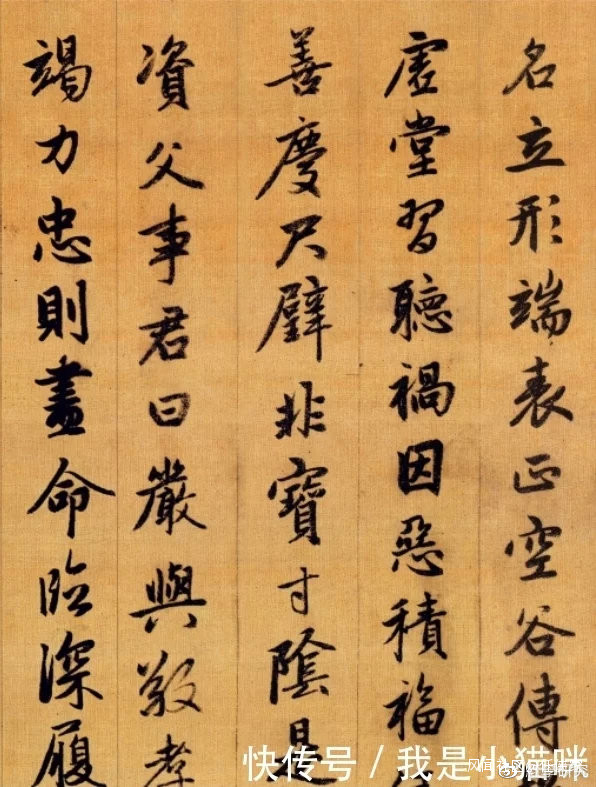 名立形端表正空谷傳
虛堂習聽禍因惡積福
善慶尺璧非寶寸陰是
資父事君曰嚴與敬孝
竭力忠則盡命臨深履
快传号 / 我是小猫咪